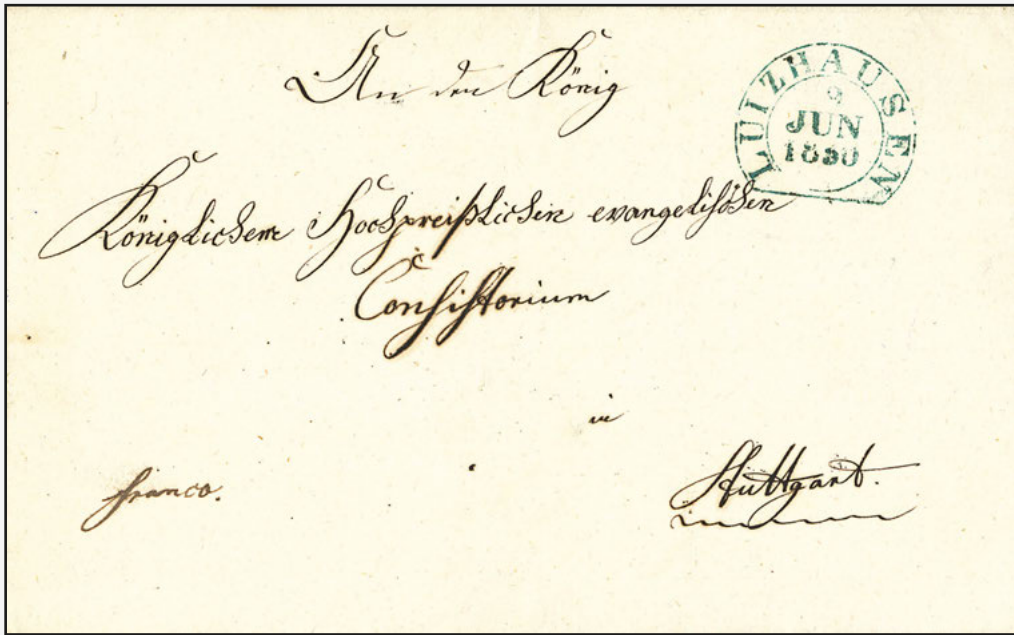 An den König
LUIZHAUSEN
9
JUN
1830
Königlichem Hochpreißlichen evangelischen
Consistorium
in
franco.
Stuttgart.